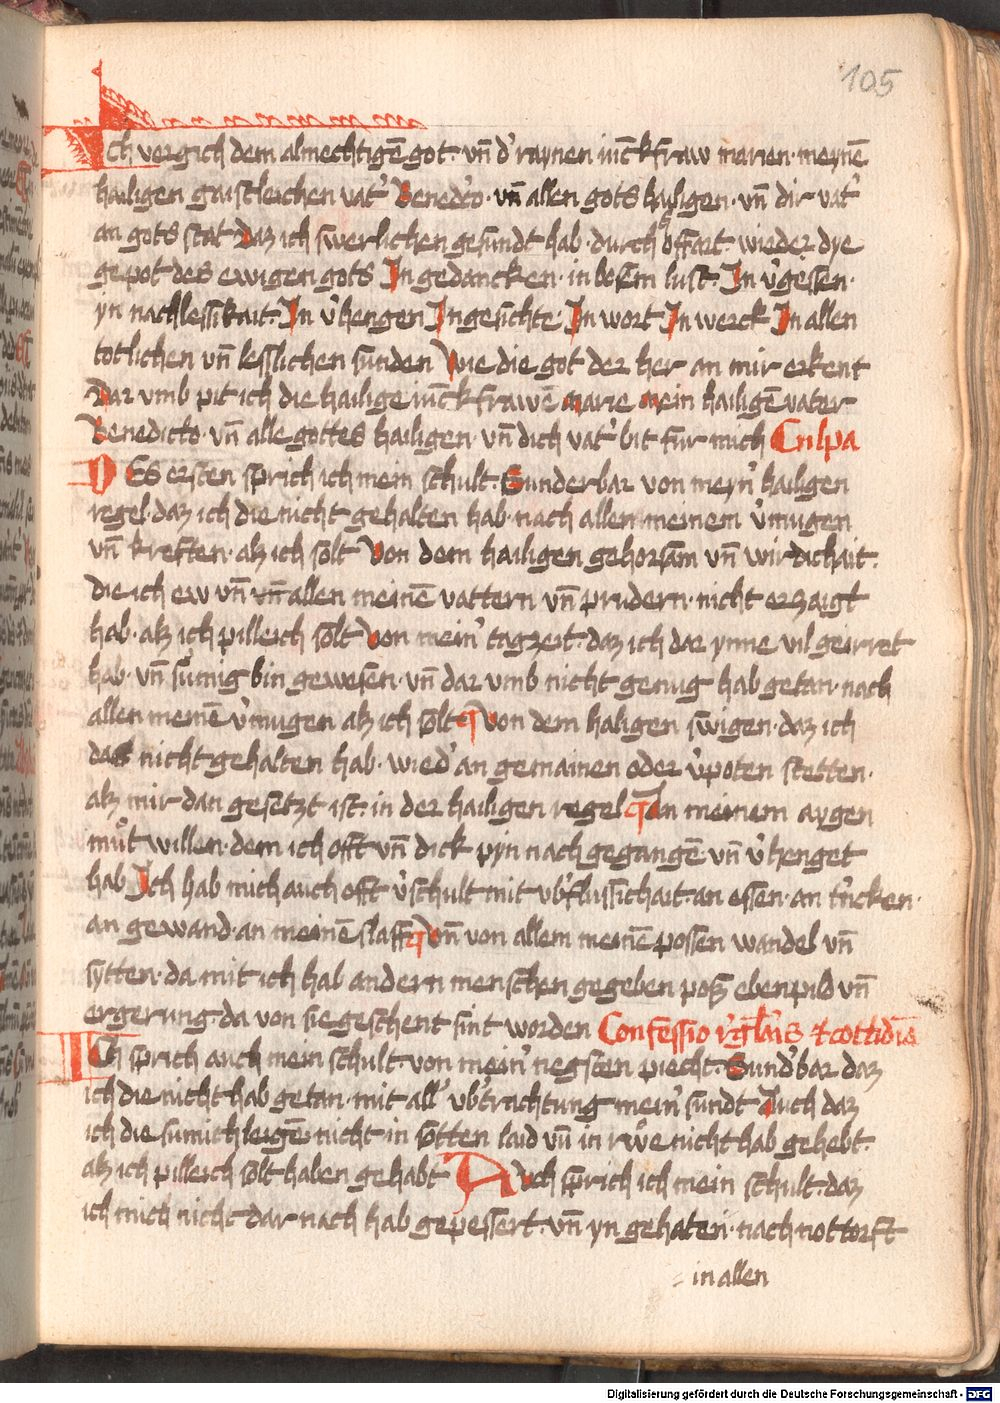 105
Ich vergich dem almechtigē got · vn̄ d' raynen iūckfraw marien · meynē
hailigen gaistleichen vat' Benedc̄to · vn̄ allen gots hailigen · vn̄ dir vat'
an gots stat Daz ich swerlichen gesundt hab · durch hoffart wieder dye
gepot des ewigen gots In gedancken · in bosem lust · In v'gessen ·
yn nachlessikait · In v'hengen In gesichte · In wort In werck In allen
totlichen vn̄ lesslichen sunden Wie die got der her an mir erkent
Dar vmb pit ich die hailige iūckfrawē marie mein hailigē vater
Benedicto · vn̄ alle gottes hailigen · vn̄ dich vat' bit fur mich Culpa
Des ersten sprich ich mein schult · Sunderbar von meyn' hailigen
regel · daz ich die nicht gehalten hab · nach allen meinem v'mugen
vn̄ kreften · alz ich solt Von dem hailigen gehorsam vn̄ wirdichait ·
die ich ew vn̄ allen meinē vattern vn̄ prudern · nicht erzaigt
hab · alz ich pilleich solt Von mein' tagzeit · daz ich dar ynne vil geirret
hab · vn̄ sumig bin gewesen · vn̄ dar vmb nicht genug hab getan · nach
allen meinē v'mugen alz ich solt Von dem haligen swigen · daz ich
daß nicht gehalten hab · wied' an gemainen oder v'poten stetten ·
alz mir dan gesetzt ist · in der hailigen regel In meinem aygen
můt willen · dem ich offt vn̄ dick pyn nach gegangē vn̄ v'henget
hab Ich hab mich auch offt v'schult mit vb'flussichait · an essen · an t'ncken ·
an gewand · an meinē slaff Vn̄ von allem meinē possen wandel vn̄
sytten · da mit ich hab andern menschen gegeben poß ebenpild vn̄
ergerung da von sie geschent sint worden Confessio r'gl'ris & cottidīa
Ich sprich auch mein schult · von mein' negsten piecht · Sund'bar daz
ich die nicht hab getan · mit all' vb'trachtung mein' sundt Auch daz
ich die sumichleigē nicht in sotten laid vn̄ in rwe nicht hab gehebt ·
alz ich pilleich solt haben gehabt Auch sprich ich mein schult · daz
ich mich nicht dar nach hab gepessert · vn̄ yn gehaten · nach nottorft
in allen
Digitalisierung gefördert durch die Deutsche Forschungsgemeinschaft - DFG